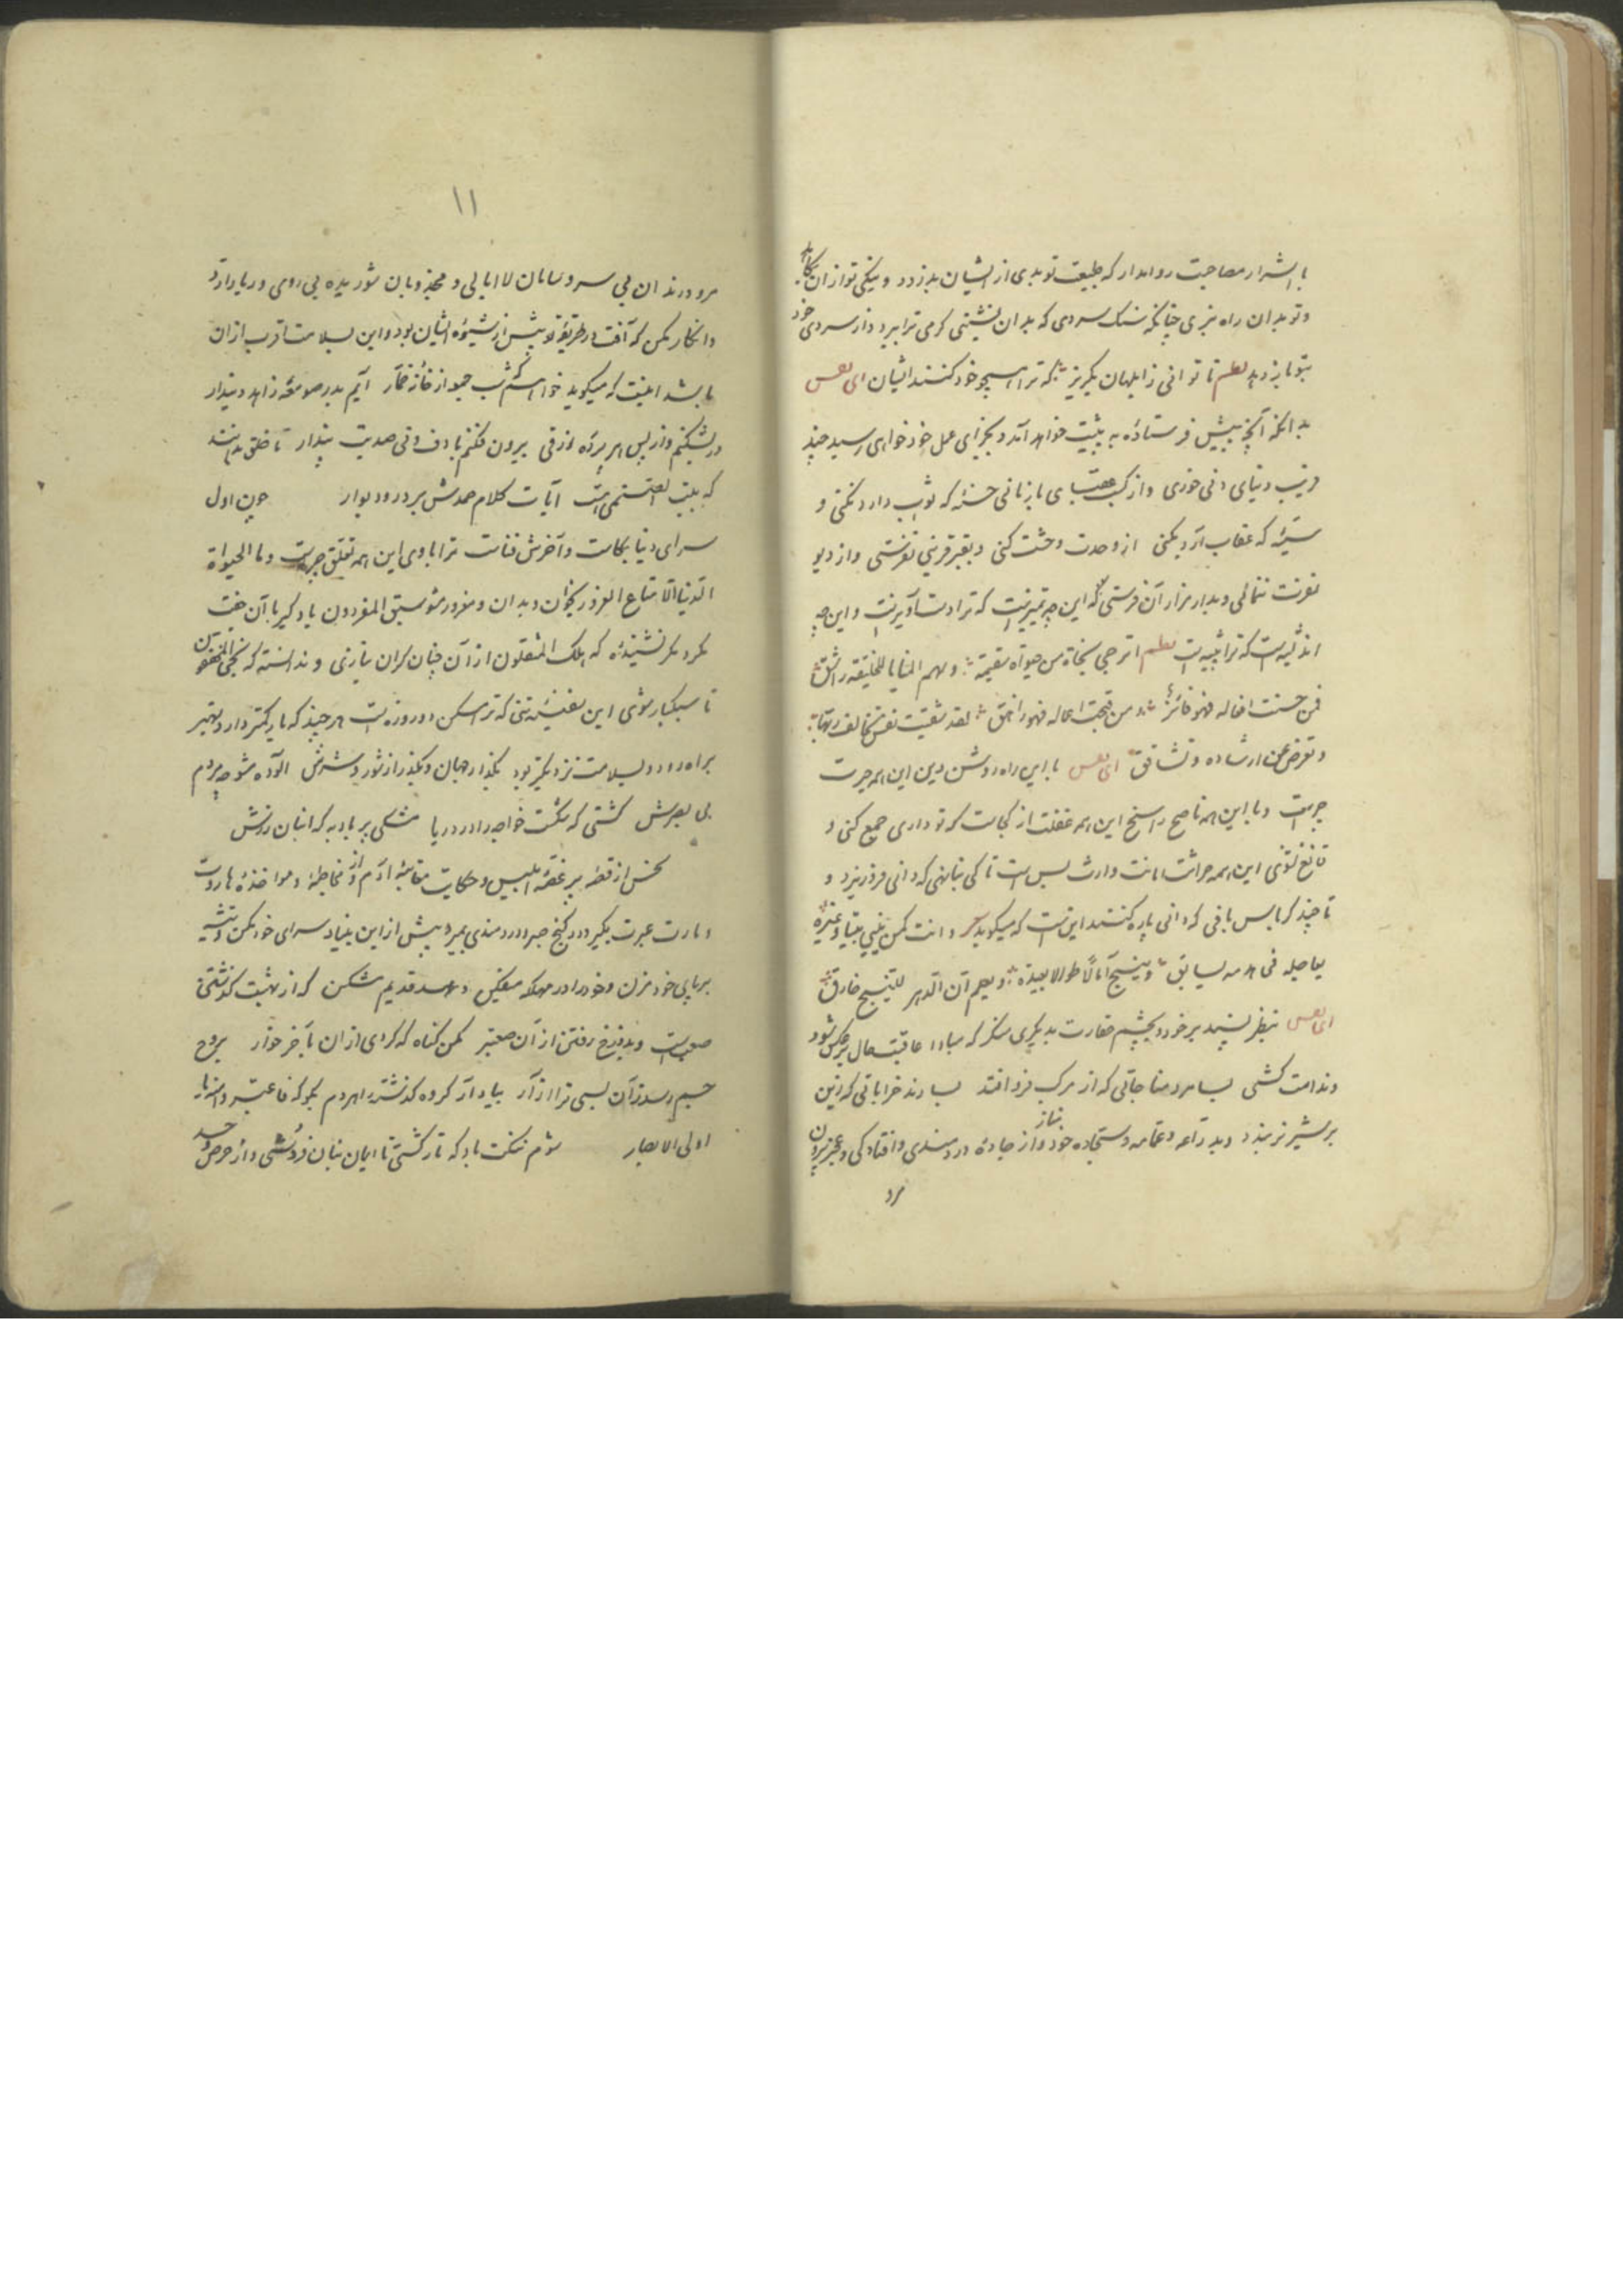 با اشرار مصاحبت روا مدار که طبیعت تو بدی از ایشان بدزدد و نیکی تو از آن بکاهد
و تو بدان راه نبری چنانکه سنک سردی که بدان نشینی کرمی ترا ببرد و از سردی خود
بتو باز دهد نظم تا توانی ز ابلهان بکریز که ترا همچو خود کنند ایشان ای نفس
بدانکه آنچه پیش فرستاده به پیشت خواهد آمد و بجزای عمل خود خواهی رسید چند
فریب دنیای دنی خوری و از کسب عقبی باز مانی حسنهٔ که ثواب دارد نکنی و
سیئهٔ که عقاب آرد بکنی از وحدت وحشت کنی و بقبر قرینی نفرستی و از دیو
نفرت ننمائی و بدار قرار آن فرستی که این چه تمیزیست که ترا دست آویزست و این چه
اندیشه است که ترا پیشه است نظم اترجی نجاة من حیوة سقیمة وسهم المنایا للخلیقة راشق
فمن حسنت افعاله فهو فائز ومن قبحت اعماله فهو زاهق لقد شقیت نفس تخالف ربها
وتعرض عن ارشاده وتشاقق ای نفس با این راه روشن دین این همه حیرت
چیست و با این همه ناصح راسخ این همه غفلت از کجاست که تو داری جمع کنی و
قانع نشوی این همه حراثت امانت وارث بس است تا کی بنا نهی که دانی فرو ریزد و
تا چند کرباس بافی که دانی پاره کنند اینست که میکوید شعر وانت کمن یبنی بناء وغیره
یعاجله فی هدمه یسابق وینسج آمالا طوالا بعیدة ویعلم ان الدهر للنسج خارق
ای نفس بنظر پسند بر خود و بچشم حقارت بدیکری منکر که مبادا عاقبت حال برعکس شود
و ندامت کشی بسا مرد مناجاتی که از مرکب فرو افتد بسا رند خراباتی که زین
بر شیر نر بندد و بدراعه و عمامه و سجاده خود مناز و از جادهٔ دردمندی و افتادکی و عجز بیرون
مرو
۱۱
مرو و رندان بی سر و سامان لاابالی و مجذوبان شوریده بی روی و ریا را رد
و انکار مکن که آفت در طریقهٔ تو بیش از شیوهٔ ایشان بود و این بسلامت اقرب از آن
باشد اینست که میکوید خواهم که شب جمعه از خانهٔ خمار آیم بدر صومعهٔ زاهد دیندار
در بشکنم و از پس هر پردهٔ زرقی بیرون فکنم با دف و نی صد بت پندار تا خلق بدانند
که بیت الصنمی هست آیات کلام صمدش بر در و دیوار چون اول
سرای دنیا بکاست و آخرش فناست ترا با وی این همه تعلق چراست وما الحیوة
الدنیا الا متاع الغرور بخوان و بدان و مغرور مشو سبق المفردون یاد کیر با آن جفت
مکرد مکر نشنیدهٔ که هلک المثقلون از آن چنان کران بارزی و ندانسته که نجی المخفون
تا سبکبار شوی این سفینهٔ تنی که ترا مسکن دو روزه است هر چند که بار کمتر دارد بهتر
براه رود و بسلامت نزدیکتر بود بکذار جهان و بکذر از شور و شرش آلوده مشو چو مردم
بی بصرش کشتی که شکست خواجه را در دریا مشکی پر باد به که انبان زرش
سخن از قصهٔ پر غصهٔ ابلیس و حکایت معاتبهٔ آدم و از مخاطبهٔ و مواخذهٔ هاروت
و ماروت عبرت بکیر و در کنج صبر و دردمندی بمیر و بیش از این بنیاد سرای خود مکن و تیشه
بر پای خود مزن و خود را در مهلکه میفکن و عهد قدیم مشکن که از بهشت کذشتن
صعبست و بدوزخ رفتن از آن صعبتر مکن کناه که کردی از آن بآخر خوار بروح
جسم رسد زآن بسی ترا آزار بیاد آر کروه کذشته را هر دم بکو که فاعتبروا یا
اولی الابصار شوم نکبت باد که تارک شتی تا ایمان بنان فروشی و از حرص و حسد